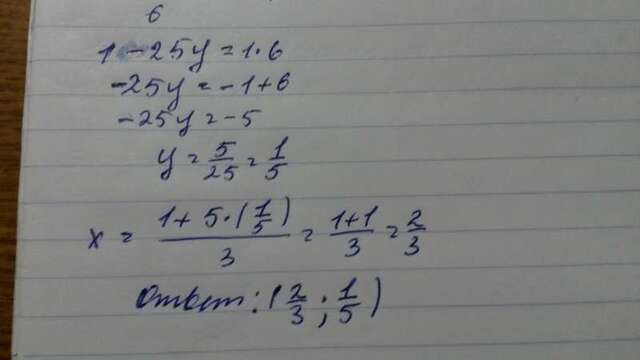 6
1 - 25y = 1·6
-25y = -1+6
-25y = -5
y = 5/25 = 1/5
x = (1+5·(1/5))/3 = (1+1)/3 = 2/3
Ответ: (2/3; 1/5)